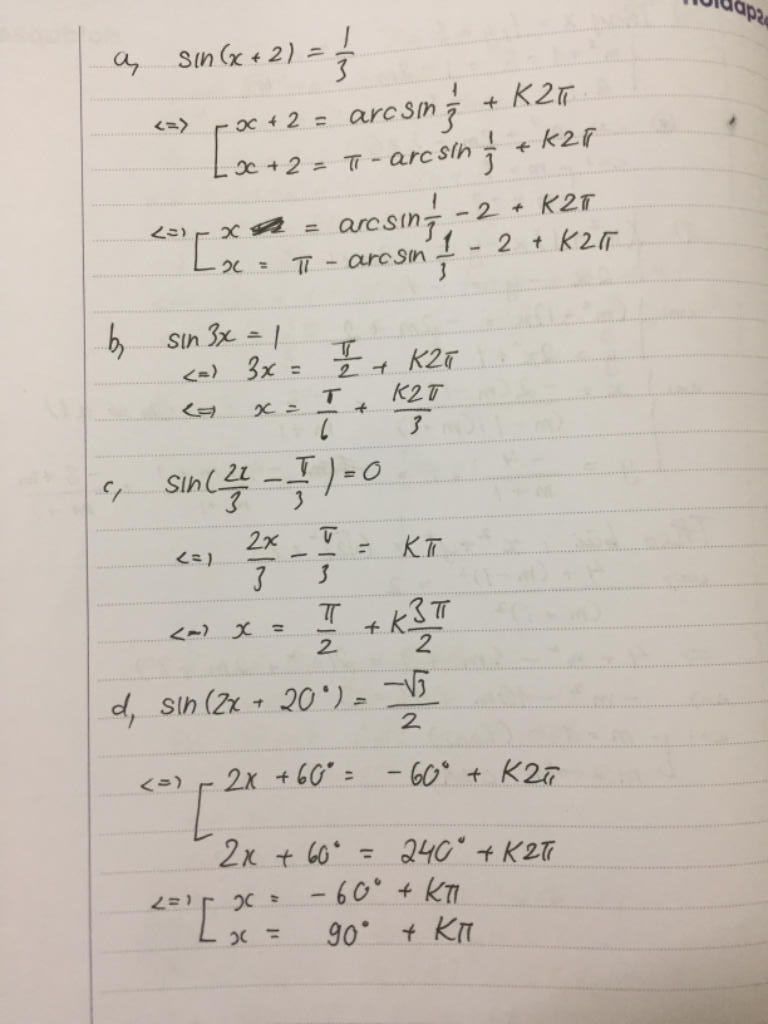 a, sin(x + 2) = 1/3
<=> [ x + 2 = arcsin 1/3 + K2π
x + 2 = π - arcsin 1/3 + K2π
<=> [ x = arcsin 1/3 - 2 + K2π
x = π - arcsin 1/3 - 2 + K2π
b, sin 3x = 1
<=> 3x = π/2 + K2π
<=> x = π/6 + K2π/3
c, sin(2x/3 - π/3) = 0
<=> 2x/3 - π/3 = Kπ
<=> x = π/2 + K 3π/2
d, sin(2x + 20°) = -√3/2
<=> [ 2x + 60° = -60° + K2π
2x + 60° = 240° + K2π
<=> [ x = -60° + Kπ
x = 90° + Kπ